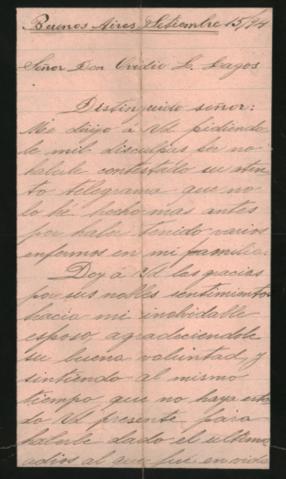 Buenos Aires Setiembre 15/94
Señor Don Ovidio L. Lagos
Distinguido señor:
Me dirijo á Vd pidiendo
le mil disculpas por no
haberle contestado su aten
to telegrama que no
lo hé hecho mas antes
por haber tenido varios
enfermos en mi familia.
Doy á Vd las gracias
por sus nobles sentimientos
hacia mi inolvidable
esposo, agradeciendole
su buena voluntad, y
sintiendo al mismo
tiempo que no haya esta
do Vd presente para
haberle dado el ultimo
adios al que fué en vida